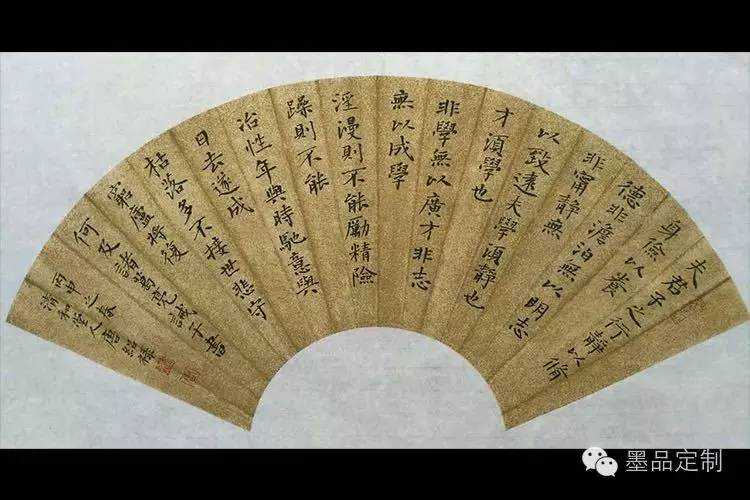 夫君子之行靜以脩
身儉以養
德非澹泊無以明志
非甯靜無
以致遠夫學須靜也
才須學也
非學無以廣才非志
無以成學
淫漫則不能勵精險
躁則不能
冶性年與時馳意與
日去遂成
枯落多不接世悲守
窮廬將復
何及諸葛亮誡子書
丙申之春
清和堂人
墨品定制